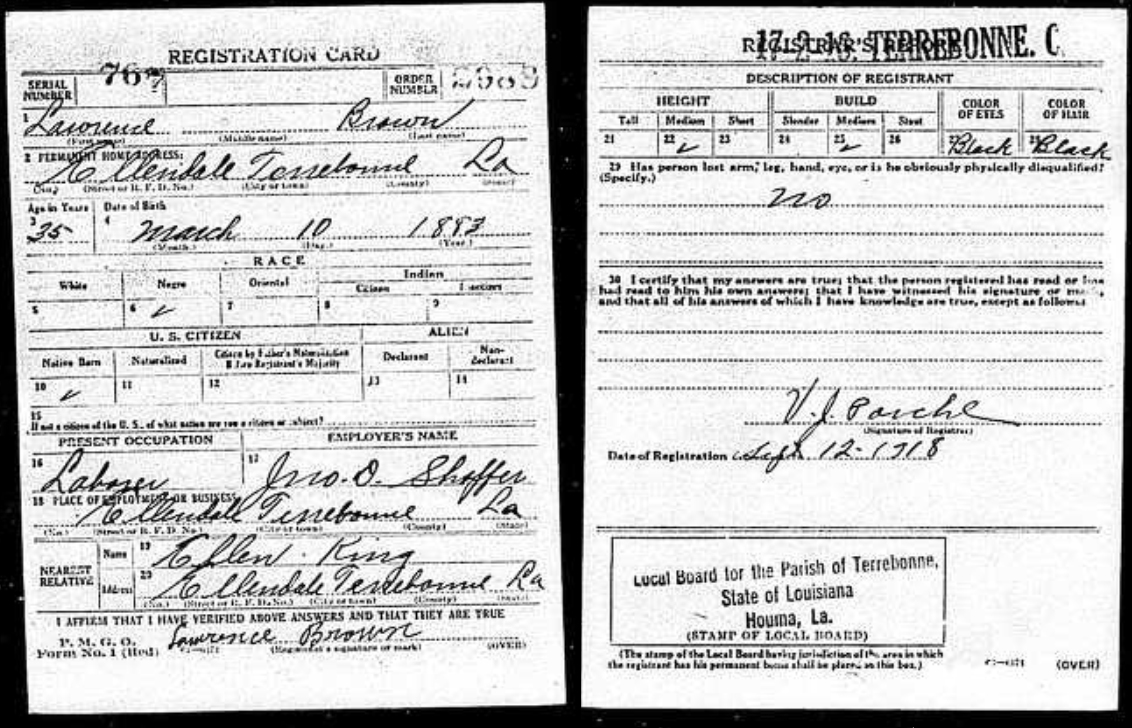 REGISTRATION CARD
SERIAL NUMBER 767 ORDER NUMBER
1 Lawrence Brown
(First name) (Middle name) (Last name)
2 PERMANENT HOME ADDRESS:
Ellendale Terrebonne La
(No.) (Street or R. F. D. No.) (City or town) (County) (State)
Age in Years Date of Birth
3 35 4 March 10 1883
(Month.) (Day.) (Year.)
RACE
White Negro Oriental Indian
Citizen
5 6 ✓ 7 8 9
U. S. CITIZEN ALIEN
Native Born Naturalized Citizen by Father's Naturalization Before Registrant's Majority Declarant Non-declarant
10 ✓ 11 12 13 14
15
If not a citizen of the U. S., of what nation are you a citizen or subject?
PRESENT OCCUPATION EMPLOYER'S NAME
16 Laborer 17 Jno. D. Shaffer
18 PLACE OF EMPLOYMENT OR BUSINESS
Ellendale Terrebonne La
(No.) (Street or R. F. D. No.) (City or town) (County) (State)
NEAREST RELATIVE
Name 19 Ellen King
Address 20 Ellendale Terrebonne La
(No.) (Street or R. F. D. No.) (City or town) (County) (State)
I AFFIRM THAT I HAVE VERIFIED ABOVE ANSWERS AND THAT THEY ARE TRUE
P. M. G. O.
Form No. 1 (Red) Lawrence Brown
(Registrant's signature or mark) (OVER)
REGISTRAR'S REPORT
17-2-16. TERREBONNE. C
DESCRIPTION OF REGISTRANT
HEIGHT BUILD COLOR OF EYES COLOR OF HAIR
Tall Medium Short Slender Medium Stout
21 22 ✓ 23 24 25 ✓ 26 27 Black 28 Black
29 Has person lost arm, leg, hand, eye, or is he obviously physically disqualified?
(Specify.)
no
30 I certify that my answers are true; that the person registered has read or has
had read to him his own answers; that I have witnessed his signature or mark,
and that all of his answers of which I have knowledge are true, except as follows:
V. J. Porche
(Signature of Registrar)
Date of Registration Sept 12-1918
Local Board for the Parish of Terrebonne,
State of Louisiana
Houma, La.
(STAMP OF LOCAL BOARD)
(The stamp of the Local Board having jurisdiction of the area in which
the registrant has his permanent home shall be placed in this box.)
(OVER)